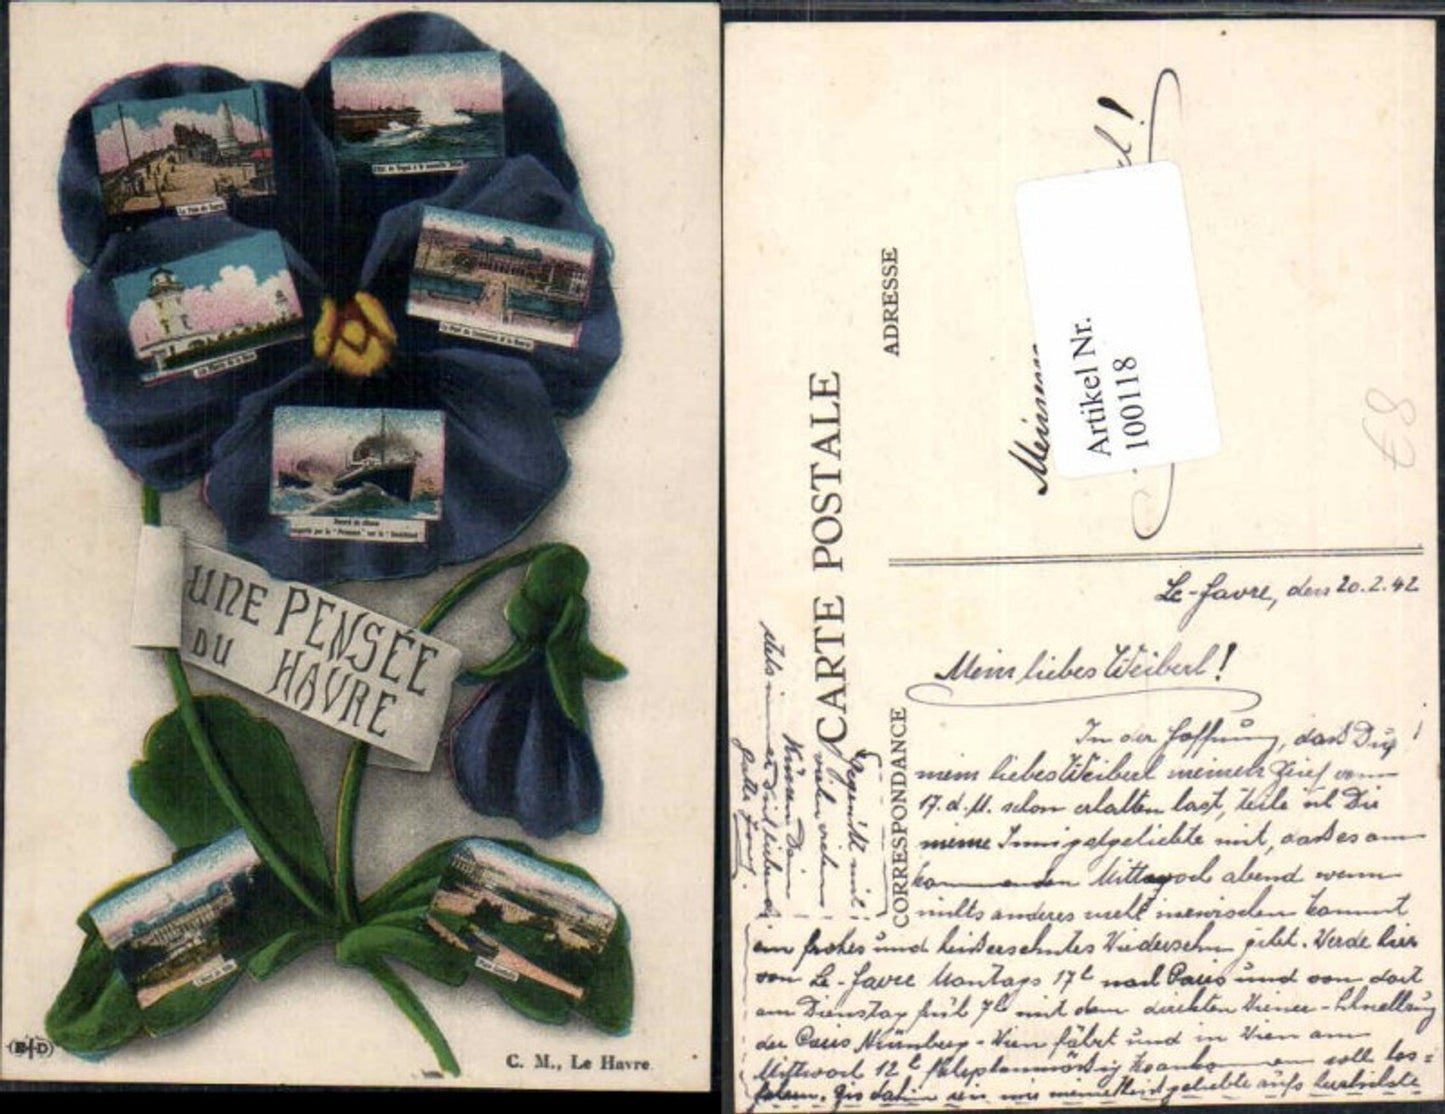 UNE PENSÉE
DU HAVRE
C. M., Le Havre
CARTE POSTALE
ADRESSE
CORRESPONDANCE
Artikel Nr.
100118
€8
Le-Havre, den 20.2.42
Mein liebes Weiberl!
In der Hoffnung, dass Du,
mein liebes Weiberl meinen Brief vom
17. d. M. schon erhalten hast, teile ich Dir
meine Innigstgeliebte mit, dass es am
kommenden Mittwoch abend wenn
nichts anderes mehr inzwischen kommt
ein frohes und heißersehntes Wiedersehn gibt. Werde hier
von Le-Havre Montags 17h nach Paris und von dort
am Dienstag früh 7h mit dem direkten Wiener-Schnellzug
der Paris Nürnberg-Wien fährt und in Wien am
Mittwoch 12h ankommen soll los=
fahren. Bis dahin sei mir meine Heissgeliebte aufs herzlichste
gegrüßt mit
vielen vielen
Küssen Dein